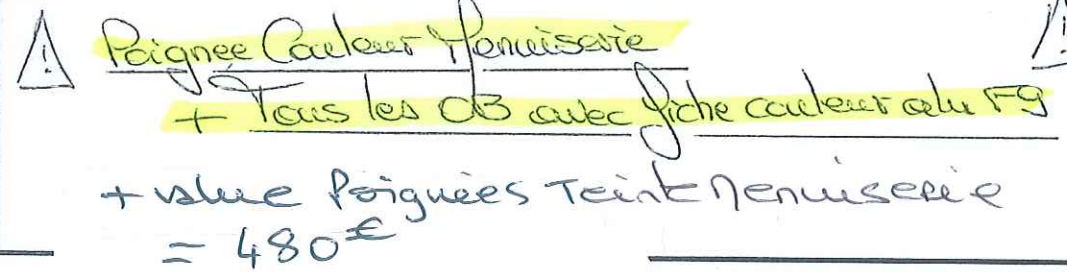 ⚠ Poignée Couleur Menuiserie ⚠
+ Tous les OB avec fiche couleur alu F9
+ value Poignées Teinte Menuiserie
= 480€